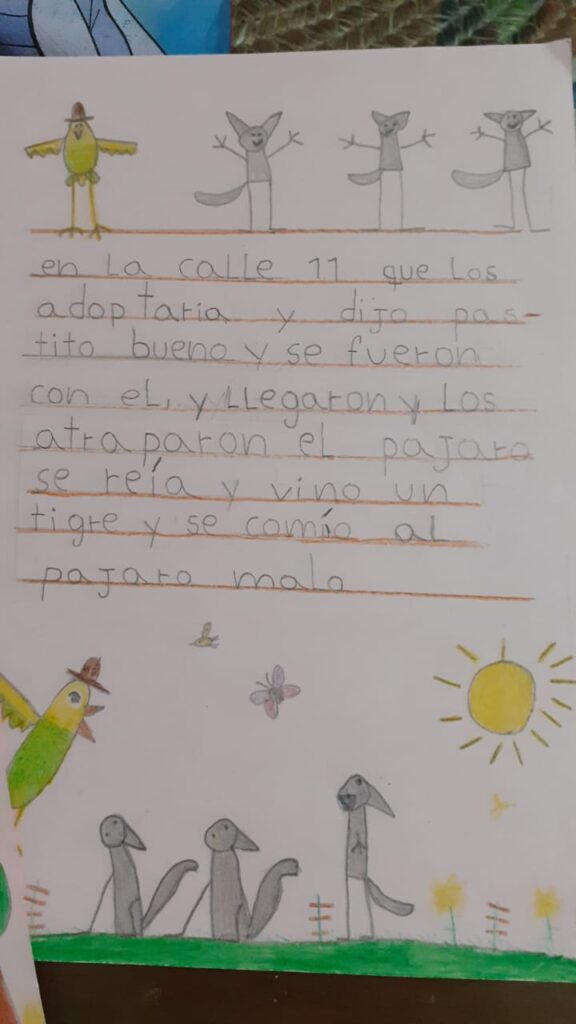 en La calle 11 que Los
adoptaria y dijo pas-
tito bueno y se fueron
con eL, y LLegaron y Los
atraparon eL pajaro
se reía y vino un
tigre y se comío al
pajaro malo